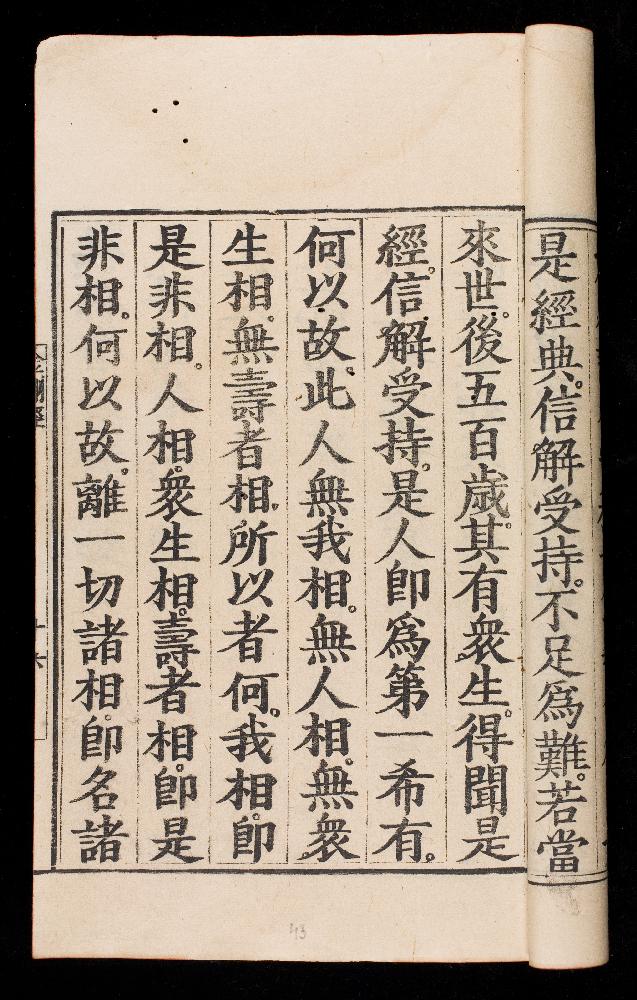 是經典。信解受持。不足爲難。若當
來世。後五百歲。其有衆生。得聞是
經。信解受持。是人卽爲第一希有。
何以故。此人無我相。無人相。無衆
生相。無壽者相。所以者何。我相卽
是非相。人相。衆生相。壽者相。卽是
非相。何以故。離一切諸相。卽名諸
43